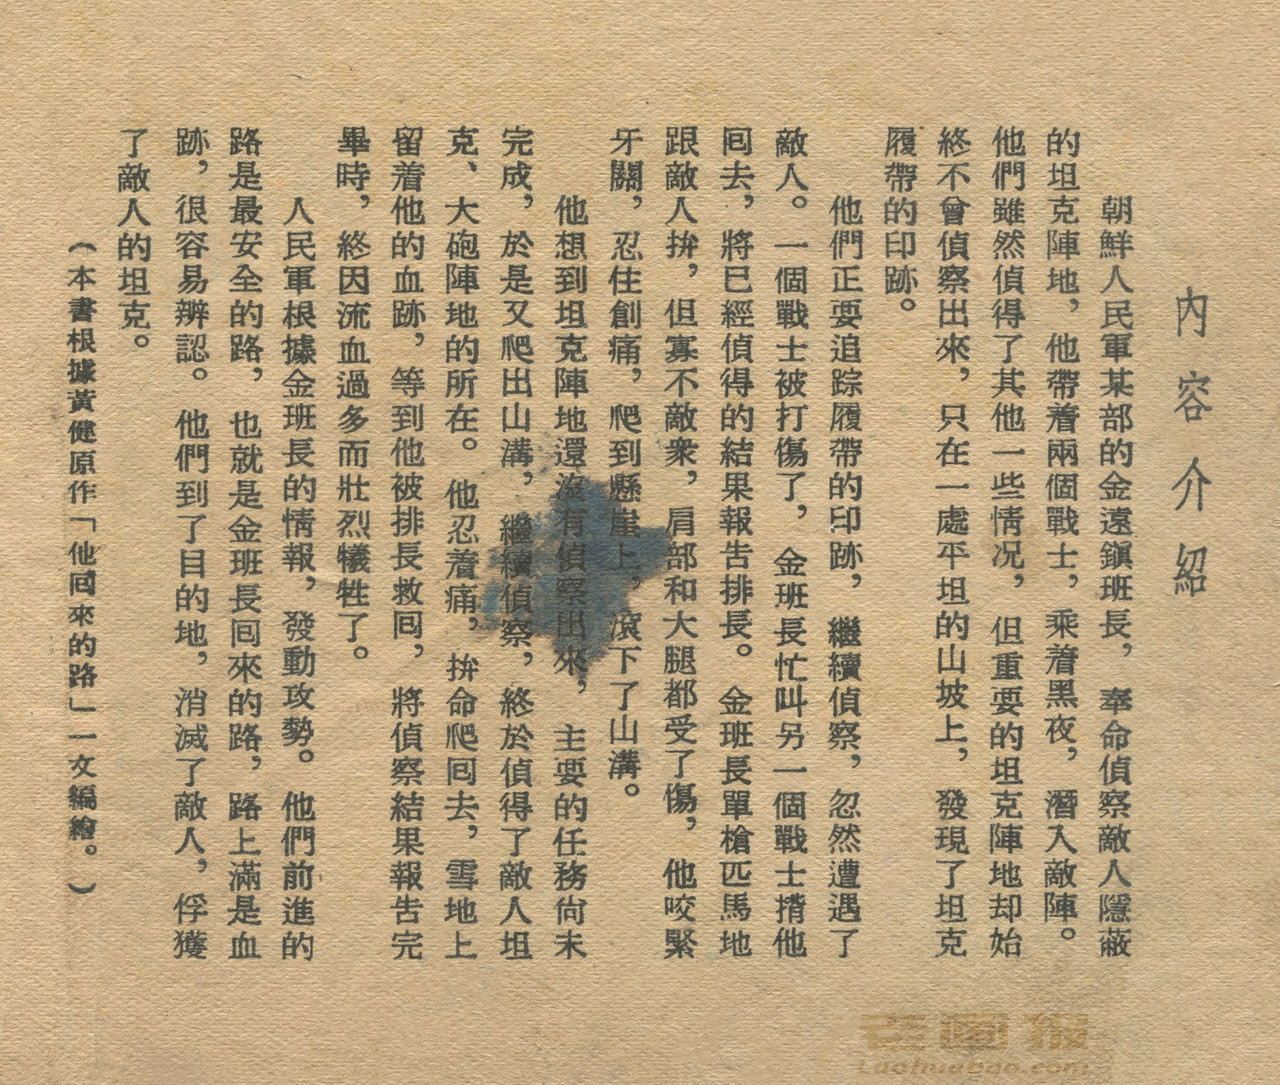 內容介紹
朝鮮人民軍某部的金遠鎭班長，奉命偵察敵人隱蔽
的坦克陣地，他帶着兩個戰士，乘着黑夜，潛入敵陣。
他們雖然偵得了其他一些情况，但重要的坦克陣地却始
終不曾偵察出來，只在一處平坦的山坡上，發現了坦克
履帶的印跡。
他們正要追踪履帶的印跡，繼續偵察，忽然遭遇了
敵人。一個戰士被打傷了，金班長忙叫另一個戰士揹他
囘去，將已經偵得的結果報告排長。金班長單槍匹馬地
跟敵人拚，但寡不敵衆，肩部和大腿都受了傷，他咬緊
牙關，忍住創痛，爬到懸崖上，滾下了山溝。
他想到坦克陣地還沒有偵察出來，主要的任務尙未
完成，於是又爬出山溝，繼續偵察，終於偵得了敵人坦
克、大砲陣地的所在。他忍着痛，拚命爬囘去，雪地上
留着他的血跡，等到他被排長救囘，將偵察結果報告完
畢時，終因流血過多而壯烈犧牲了。
人民軍根據金班長的情報，發動攻勢。他們前進的
路是最安全的路，也就是金班長囘來的路，路上滿是血
跡，很容易辨認。他們到了目的地，消滅了敵人，俘獲
了敵人的坦克。
（本書根據黃健原作「他囘來的路」一文編繪。）
老画报
Laohuabao.com